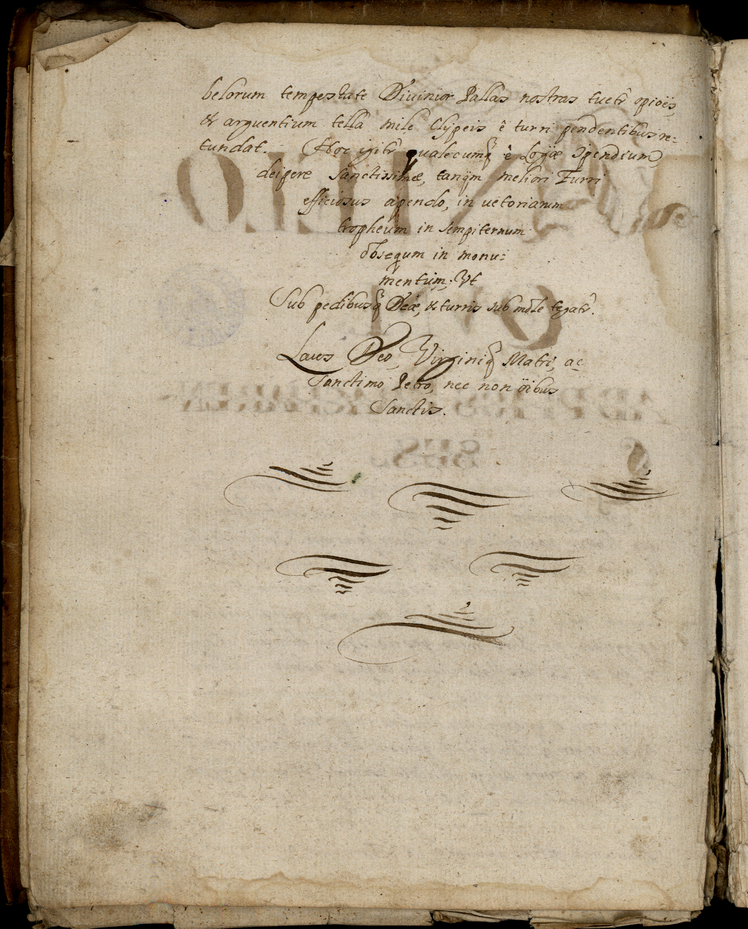 belorum tempestate Divinior Pallas nostras tuetr opiões,
& arguentium tella mile Clypeis è turri pendentibus re:
tundat. Hoc igitr qualecumq è Logicæ
deipere Sanctissimæ, tanqm meliori Turri
efficiosus apendo, in uetorianum
tropheum in sempiternum
obsequm in monu:
mentum. Ut
Sub pedibusq Deæ, & turris sub mole tegatr.
Laus Deo, Virginiq Matri, ac
Sanctimo Petro, nec non oibus
Sanctis.